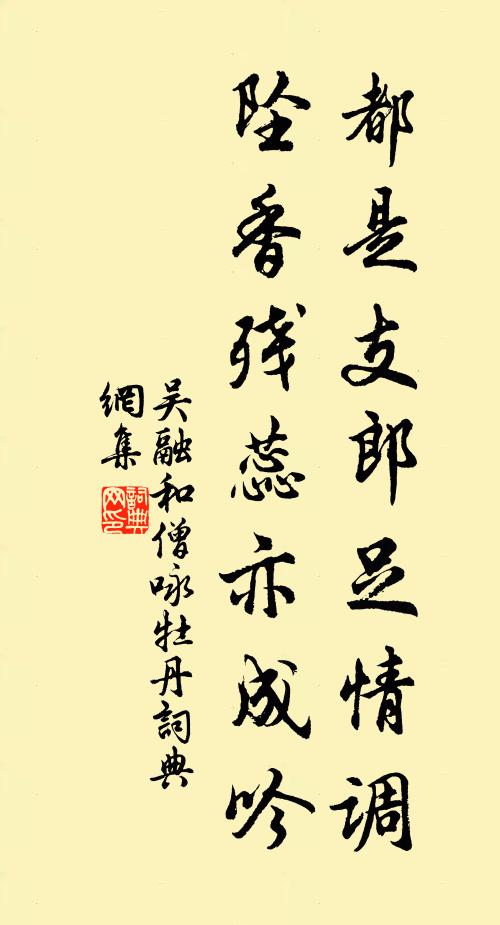 都是支郎足情调
坠香残蕊亦成吟
吴融和僧咏牡丹詞典
網集
詞典
网印